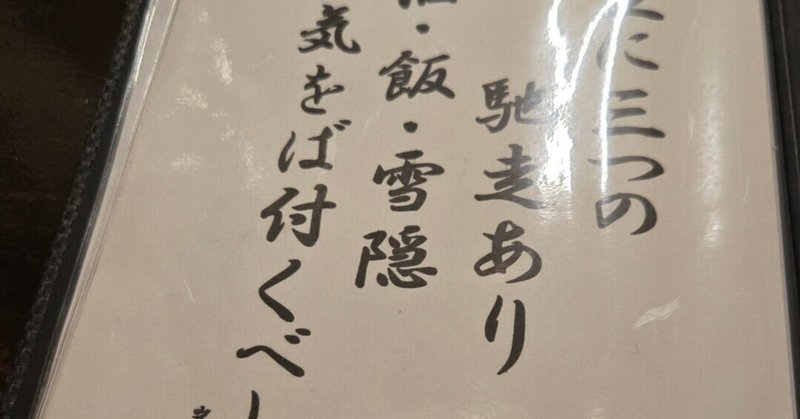 に三つの
馳走あり
・飯・雪隠
気をば付くべし